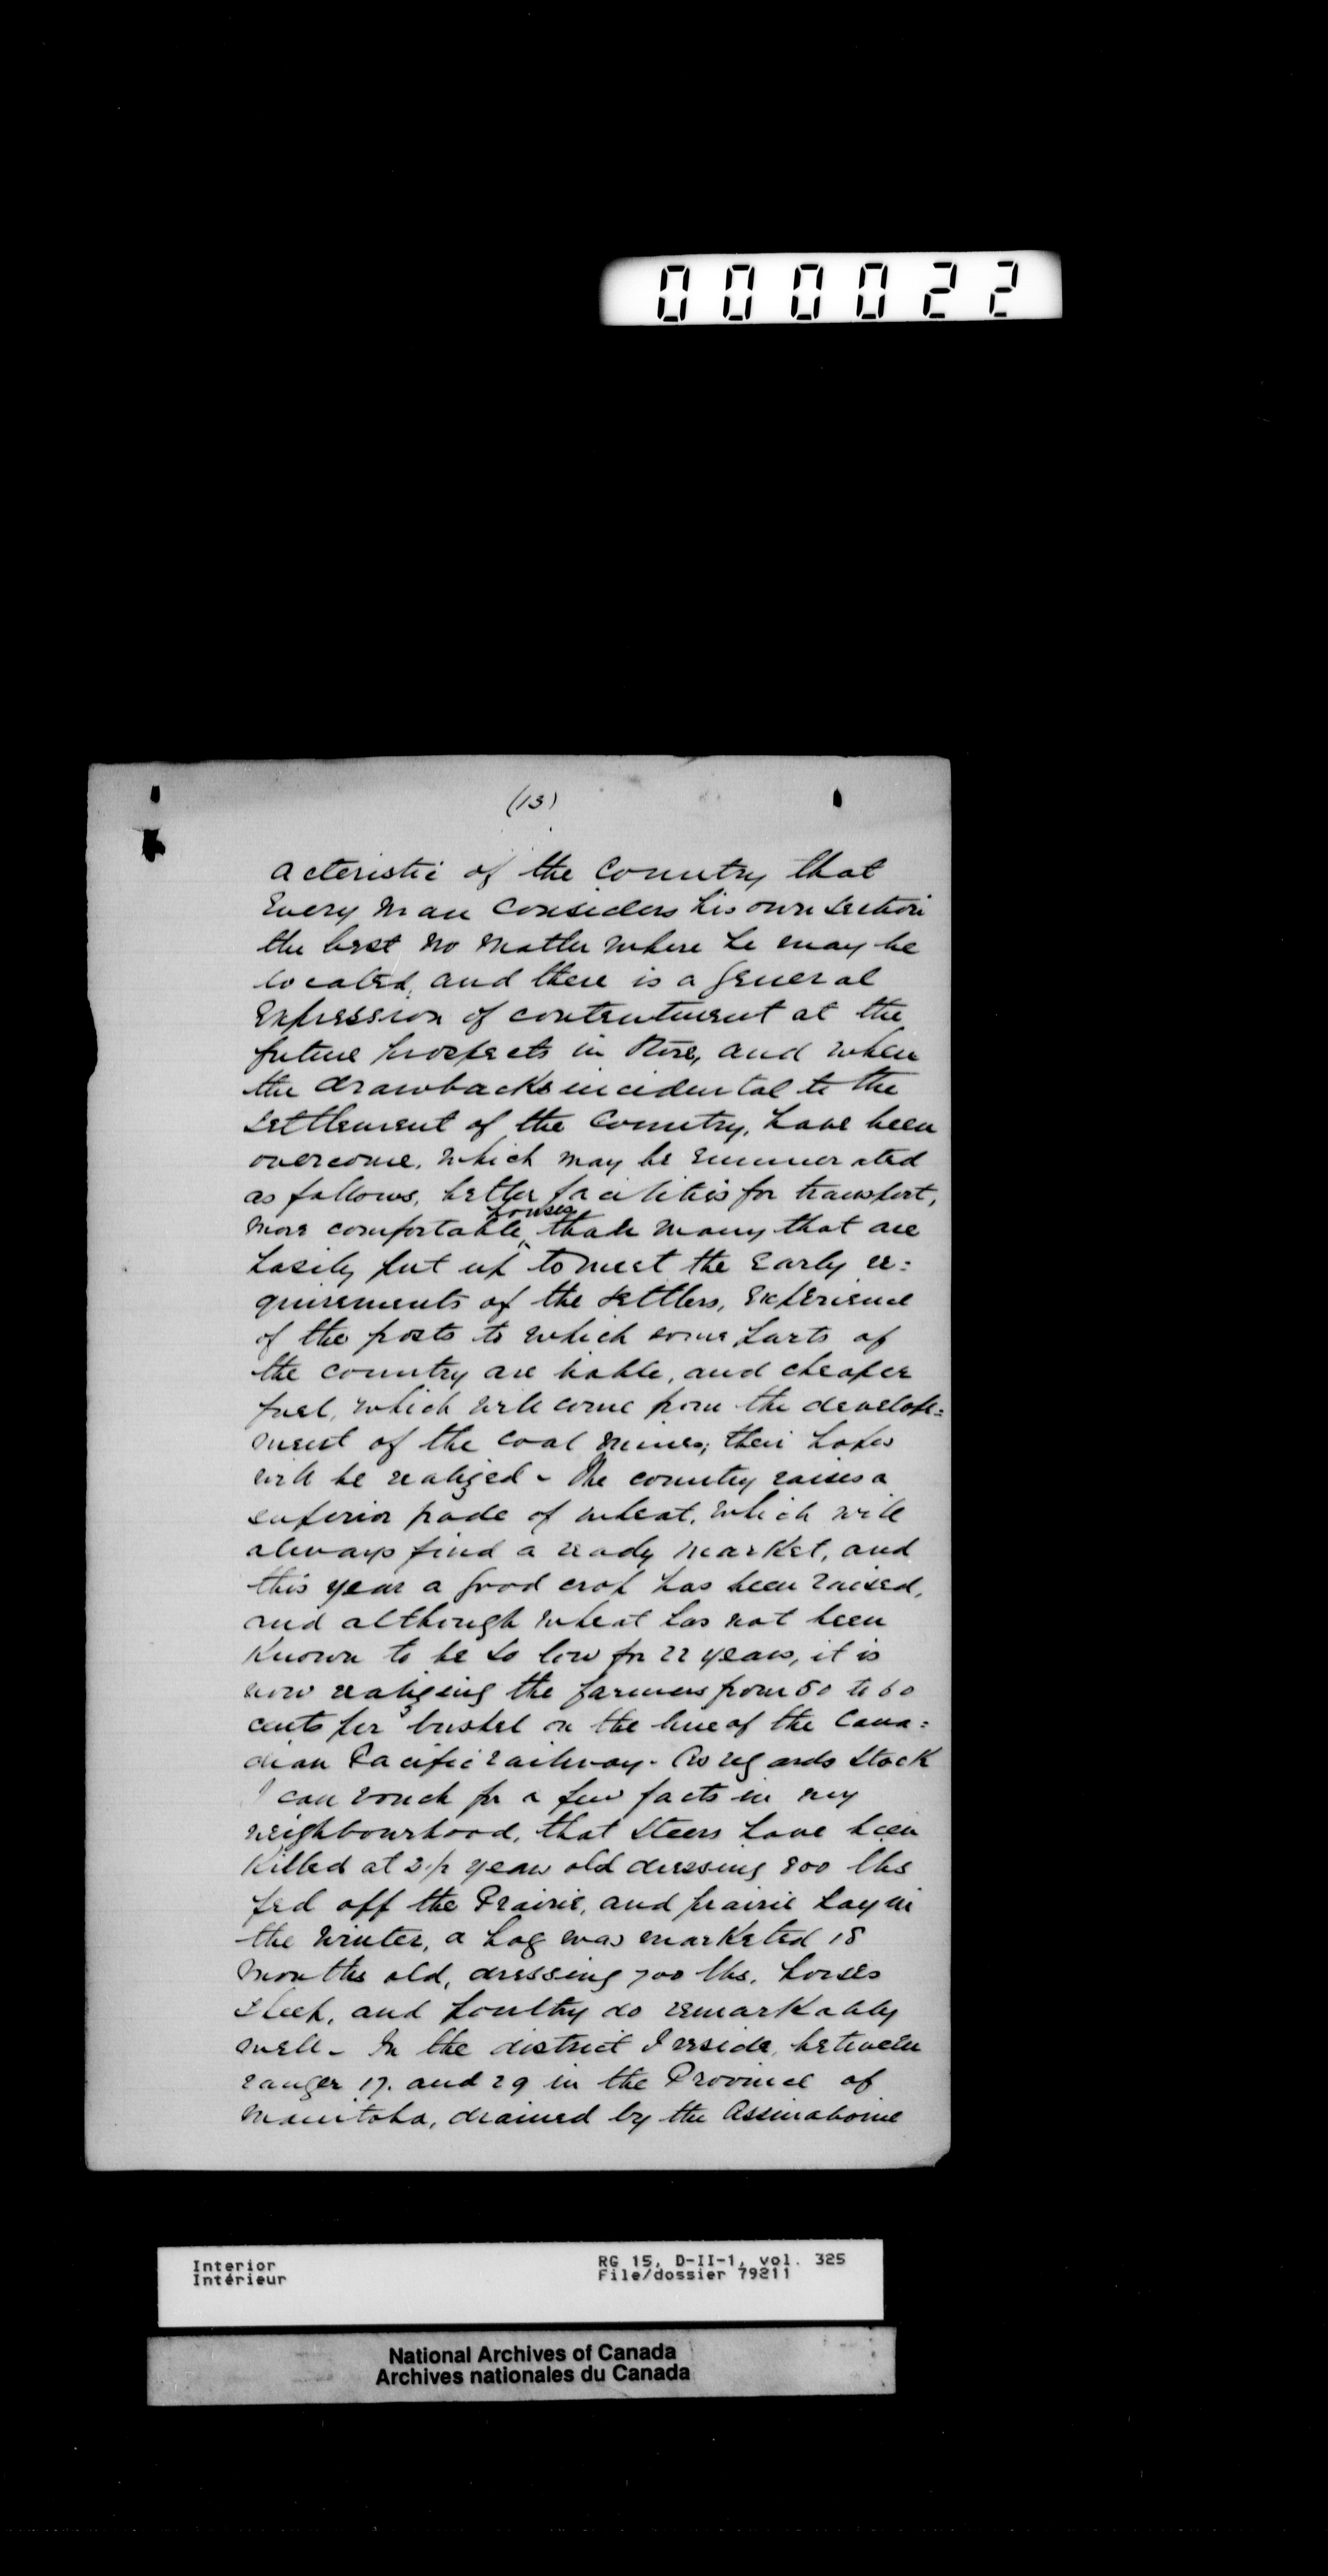 000022
(13)
acteristic of the Country that
Every man considers his own section
the best no matter where he may be
located, and there is a general
Expression of contentment at the
future prospects in store, and when
the drawbacks incidental to the
settlement of the Country, have been
overcome, which may be enumerated
as follows, better facilities for transport,
houses
more comfortable than many that are
hasily put up to meet the Early re=
quirements of the settlers, Experience
of the frosts to which some parts of
the country are liable, and cheaper
fuel, which will come from the develope=
ment of the coal mines; their hopes
will be realized - The country raises a
superior grade of wheat, which will
always find a ready market, and
this year a good crop has been raised,
and although wheat has not been
known to be so low for 22 years, it is
now realizing the farmers from 50 to 60
cents per bushel on the line of the Cana=
dian Pacific railway - As regards Stock
I can vouch for a few facts in my
neighbourhood, that steers have been
killed at 2½ years old dressing 800 lbs
fed off the Prairie, and prairie hay in
the Winter, a hog was marketed 18
months old, dressing 700 lbs. horses
sheep, and poultry do remarkably
well - In the district I reside, between
ranges 17. and 29 in the Province of
Manitoba, drained by the Assinaboine
Interior
Intérieur
RG 15, D-II-1, vol. 325
File/dossier 79211
National Archives of Canada
Archives nationales du Canada